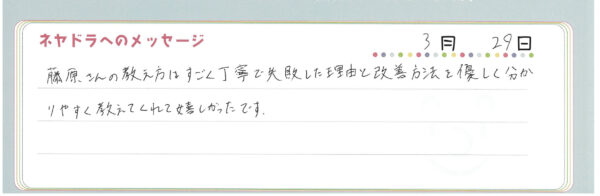 ネヤドラへのメッセージ
3月 29日
藤原さんの教え方はすごく丁寧で失敗した理由と改善方法を優しく分か
りやすく教えてくれて嬉しかったです.